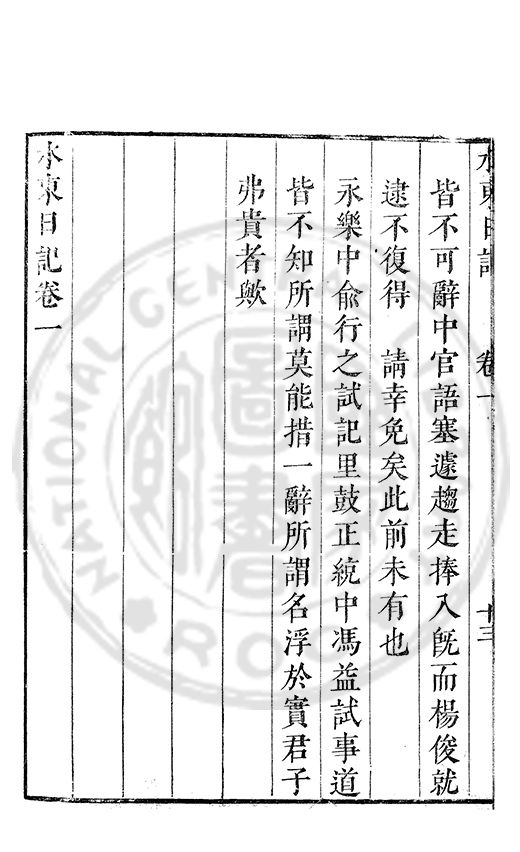 水東日記 卷一 十三
皆不可辭中官語塞遽趨走捧入旣而楊俊就
逮不復得　請幸免矣此前未有也
永樂中兪行之試記里鼓正統中馮益試事道
皆不知所謂莫能措一辭所謂名浮於實君子
弗貴者歟
水東日記卷一
NATIONAL CENTRAL